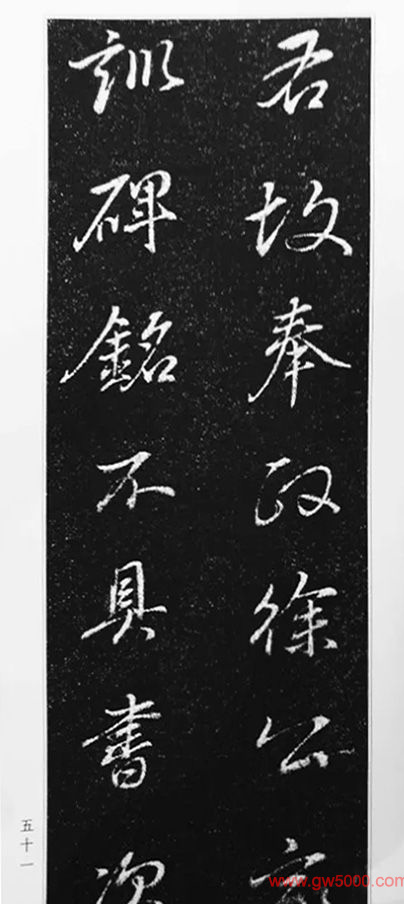 君故奉政徐公
訓碑銘不具書次
五十一
www.gw5000.com